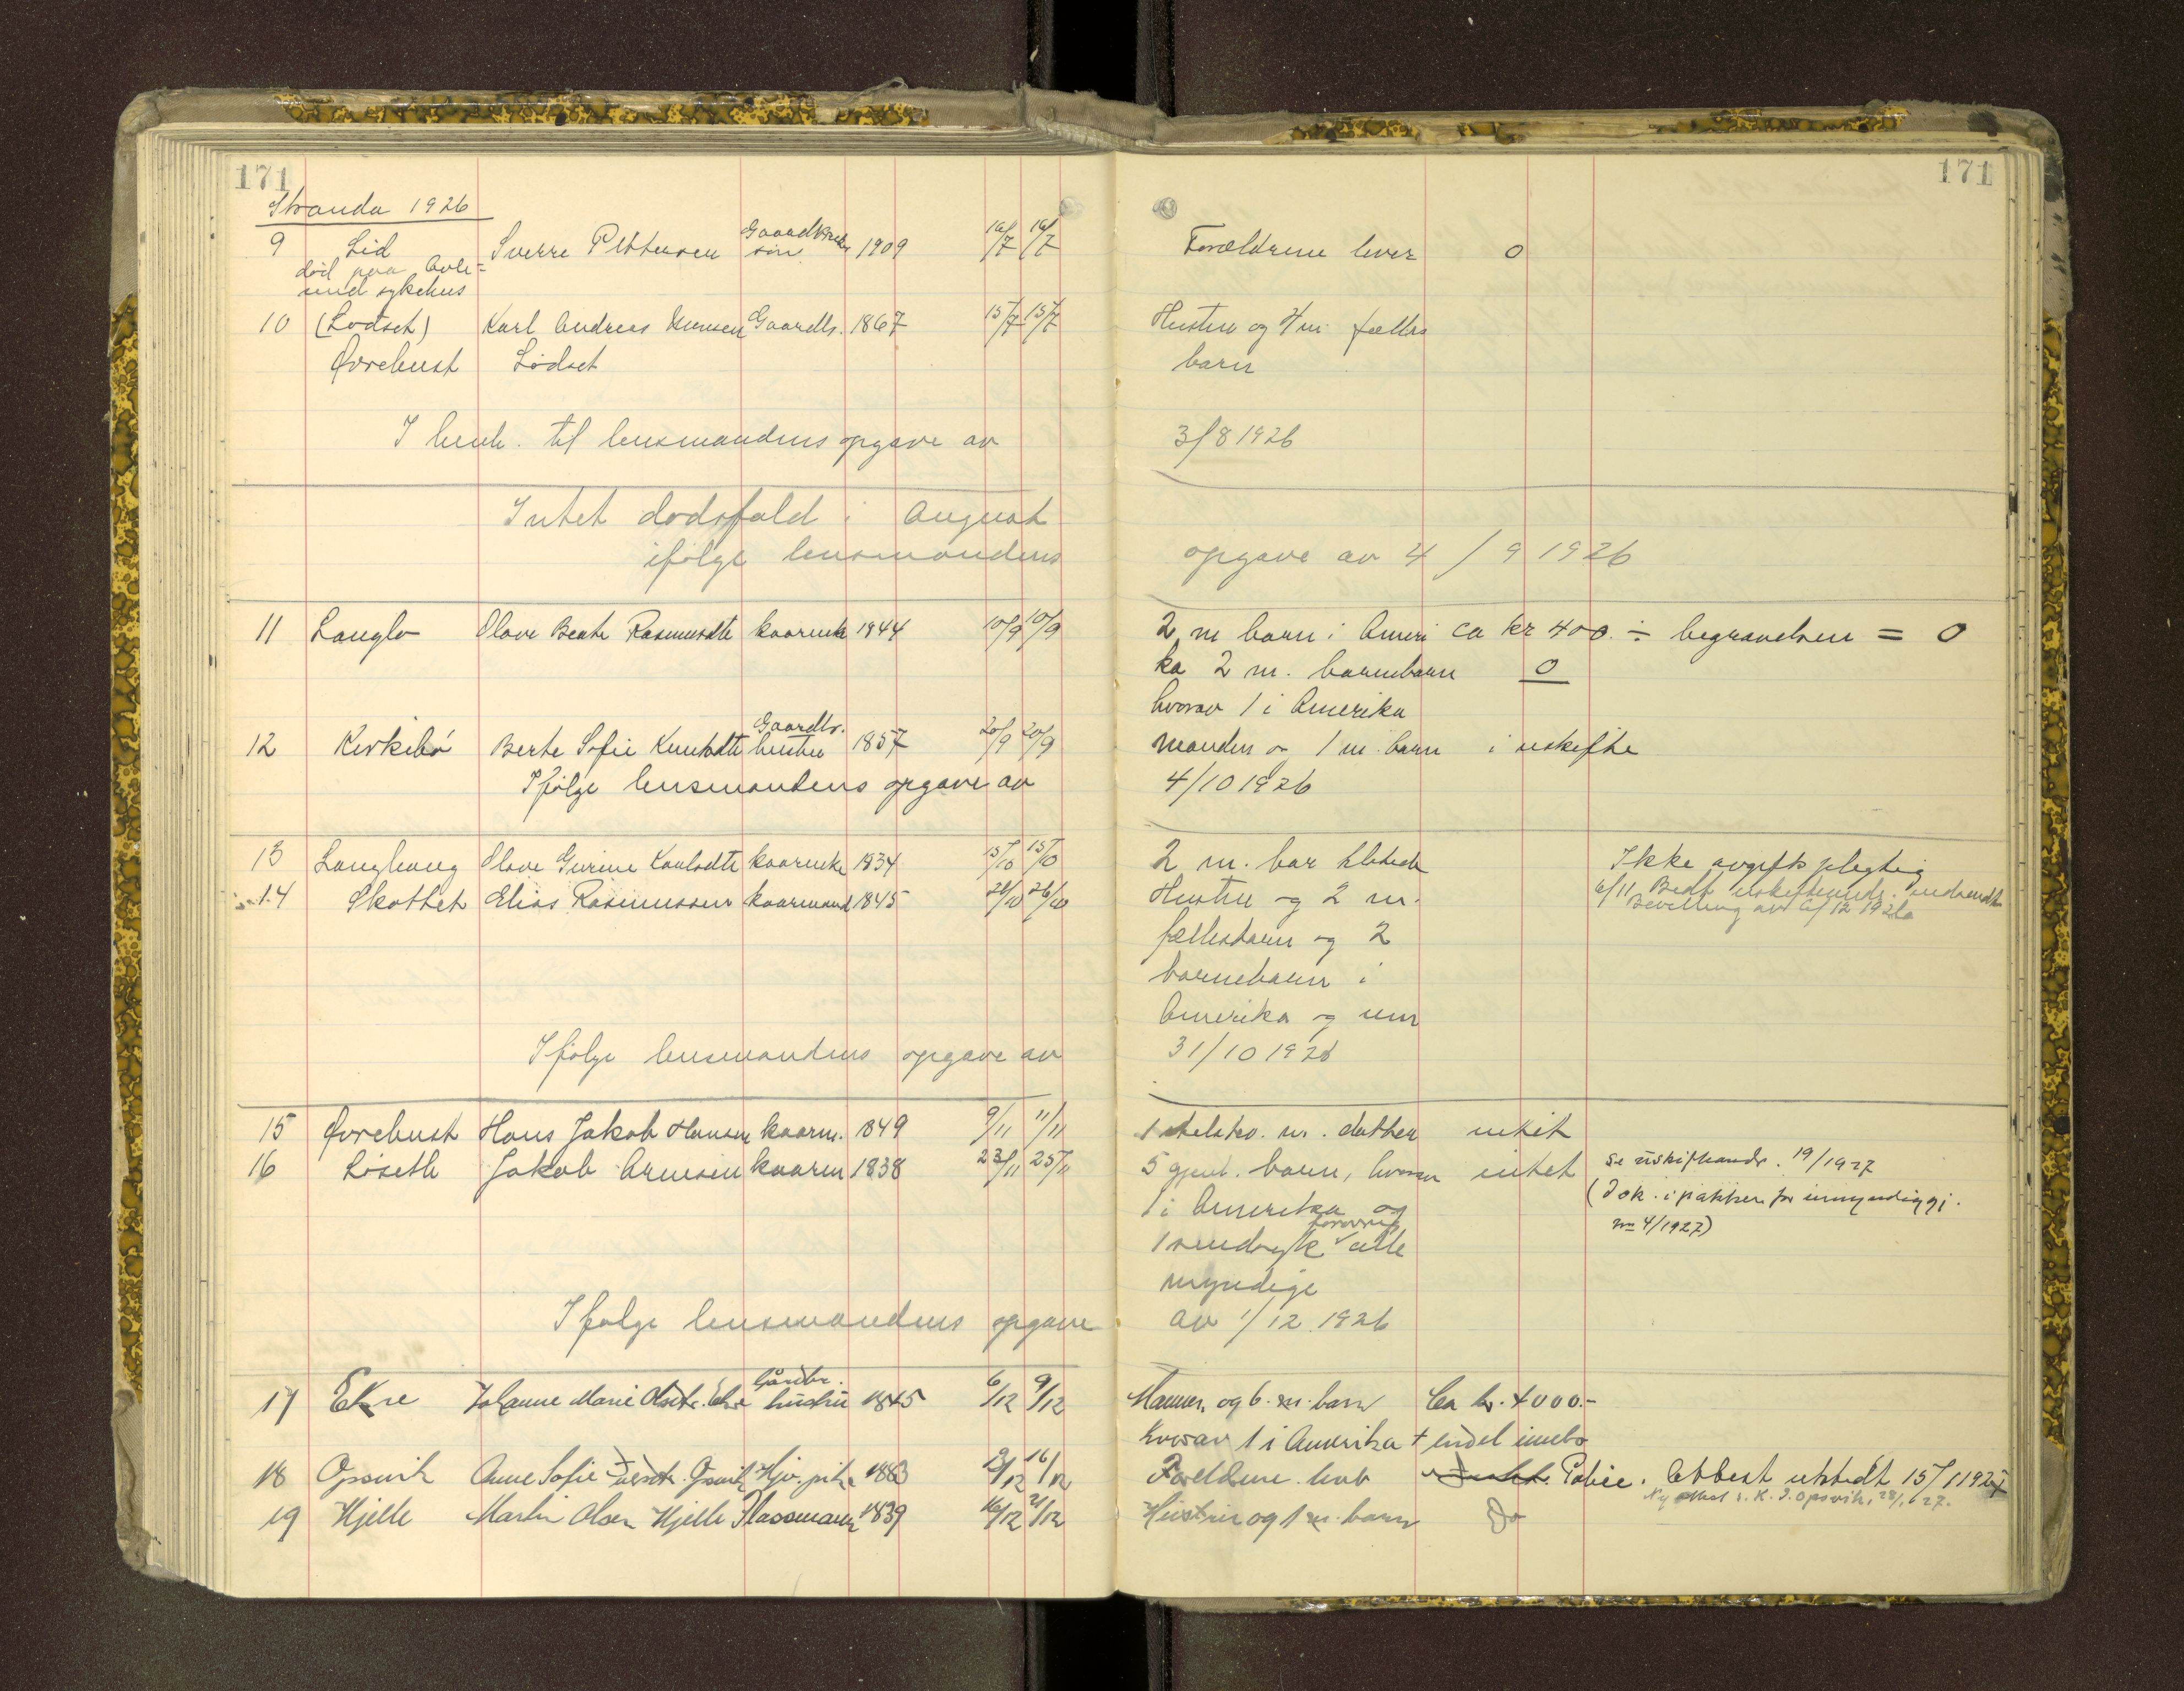 171 171
Stranda 1926
9 Lid Sverre Pettersen Gaardbruker 1909 16/7 16/7 Forældrene lever 0
død paa søn
sykehus
10 (Lødset) Karl Andreas Gaardbr. 1867 15/7 15/7 Hustru og 4 m. fælles
Øvrebust Lødset barn
I henh. til lensmandens opgave av 3/8 1926
Intet dødsfald i August
ifølge lensmandens opgave av 4/9 1926
11 Langlo Olave Beate Rasmusdtr 1844 10/9 10/9 2 m barn i Ameri ca kr 400. ÷ begravelsen = 0
ka 2 m. barnebarn 0
hvorav 1 i Amerika
Gaardbr.
12 Kirkebø Berte Sofie Knutsdtr hustru 1857 20/9 20/9 manden og 1 m. barn i uskifte
Ifølge lensmandens opgave av 4/10 1926
13 Langhaug Olave Gurine 1834 15/10 15/10 2 m. bar Ikke avgiftspligtig
14 Skothet Elias Rasmussen kaarmand 1845 26/10 Hustru og 2 m. 6/11
Bevilling av 6/12 1926
fællesbarn og 2
barnebarn i
Amerika og
Ifølge lensmandens opgave av 31/10 1926
15 Øvrebust Hans Jakob Hansen kaarm. 1849 9/11 11/11 1 m. datter intet
16 Løseth Jakob Arnesen kaarm 1838 23/11 25/11 5 gjenl. barn, hvorav intet se uskifthandr. 19/1927
1 i Amerika og (Dok. i pakken for umyndiggj.
no 4/1927)
1 sindsyk alle
myndige
Ifølge lensmandens opgave av 1/12 1926
Gårdbr.
17 Ekre Johanne Marie Olsdtr. Ekre hustru 1845 6/12 9/12 Mannen og 6 m. barn Ca kr. 4000.-
hvorav 1 i Amerika + endel innbo
18 Opsvik Anne Sofie Opsvik 1883 16/12 Foreldrene Attest utstedt 15/1 1927
Ny attest s. K. J. Opsvik, 28/1 27.
19 Hjelle Martin Olsen Hjelle Plassmann 1839 16/12 21/12 Hustru og 1 m. barn Do